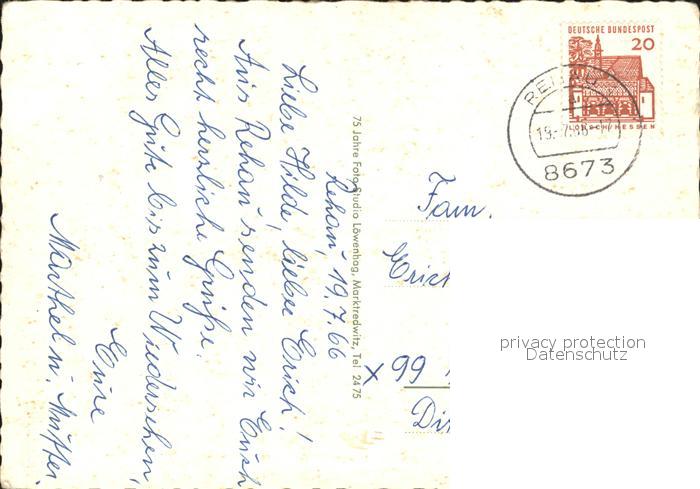 Rehau, 19.7.66
Liebe Hilde, lieber Erich!
Aus Rehau senden wir Euch
recht herzliche Grüße.
Alles Gute bis zum Wiedersehen,
Eure
Marthel u. Mutter.
75 Jahre Foto-Studio Löwenhag, Marktredwitz, Tel 2475
DEUTSCHE BUNDESPOST
20
LORSCH/HESSEN
REHAU
19.-7.66-17
8673
Fam.
Erich
x 99
privacy protection
Datenschutz